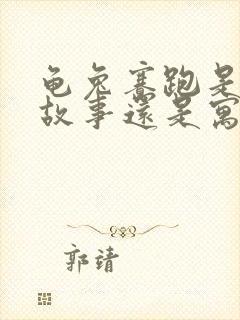 龟兔赛跑是
故事还是寓
郭靖